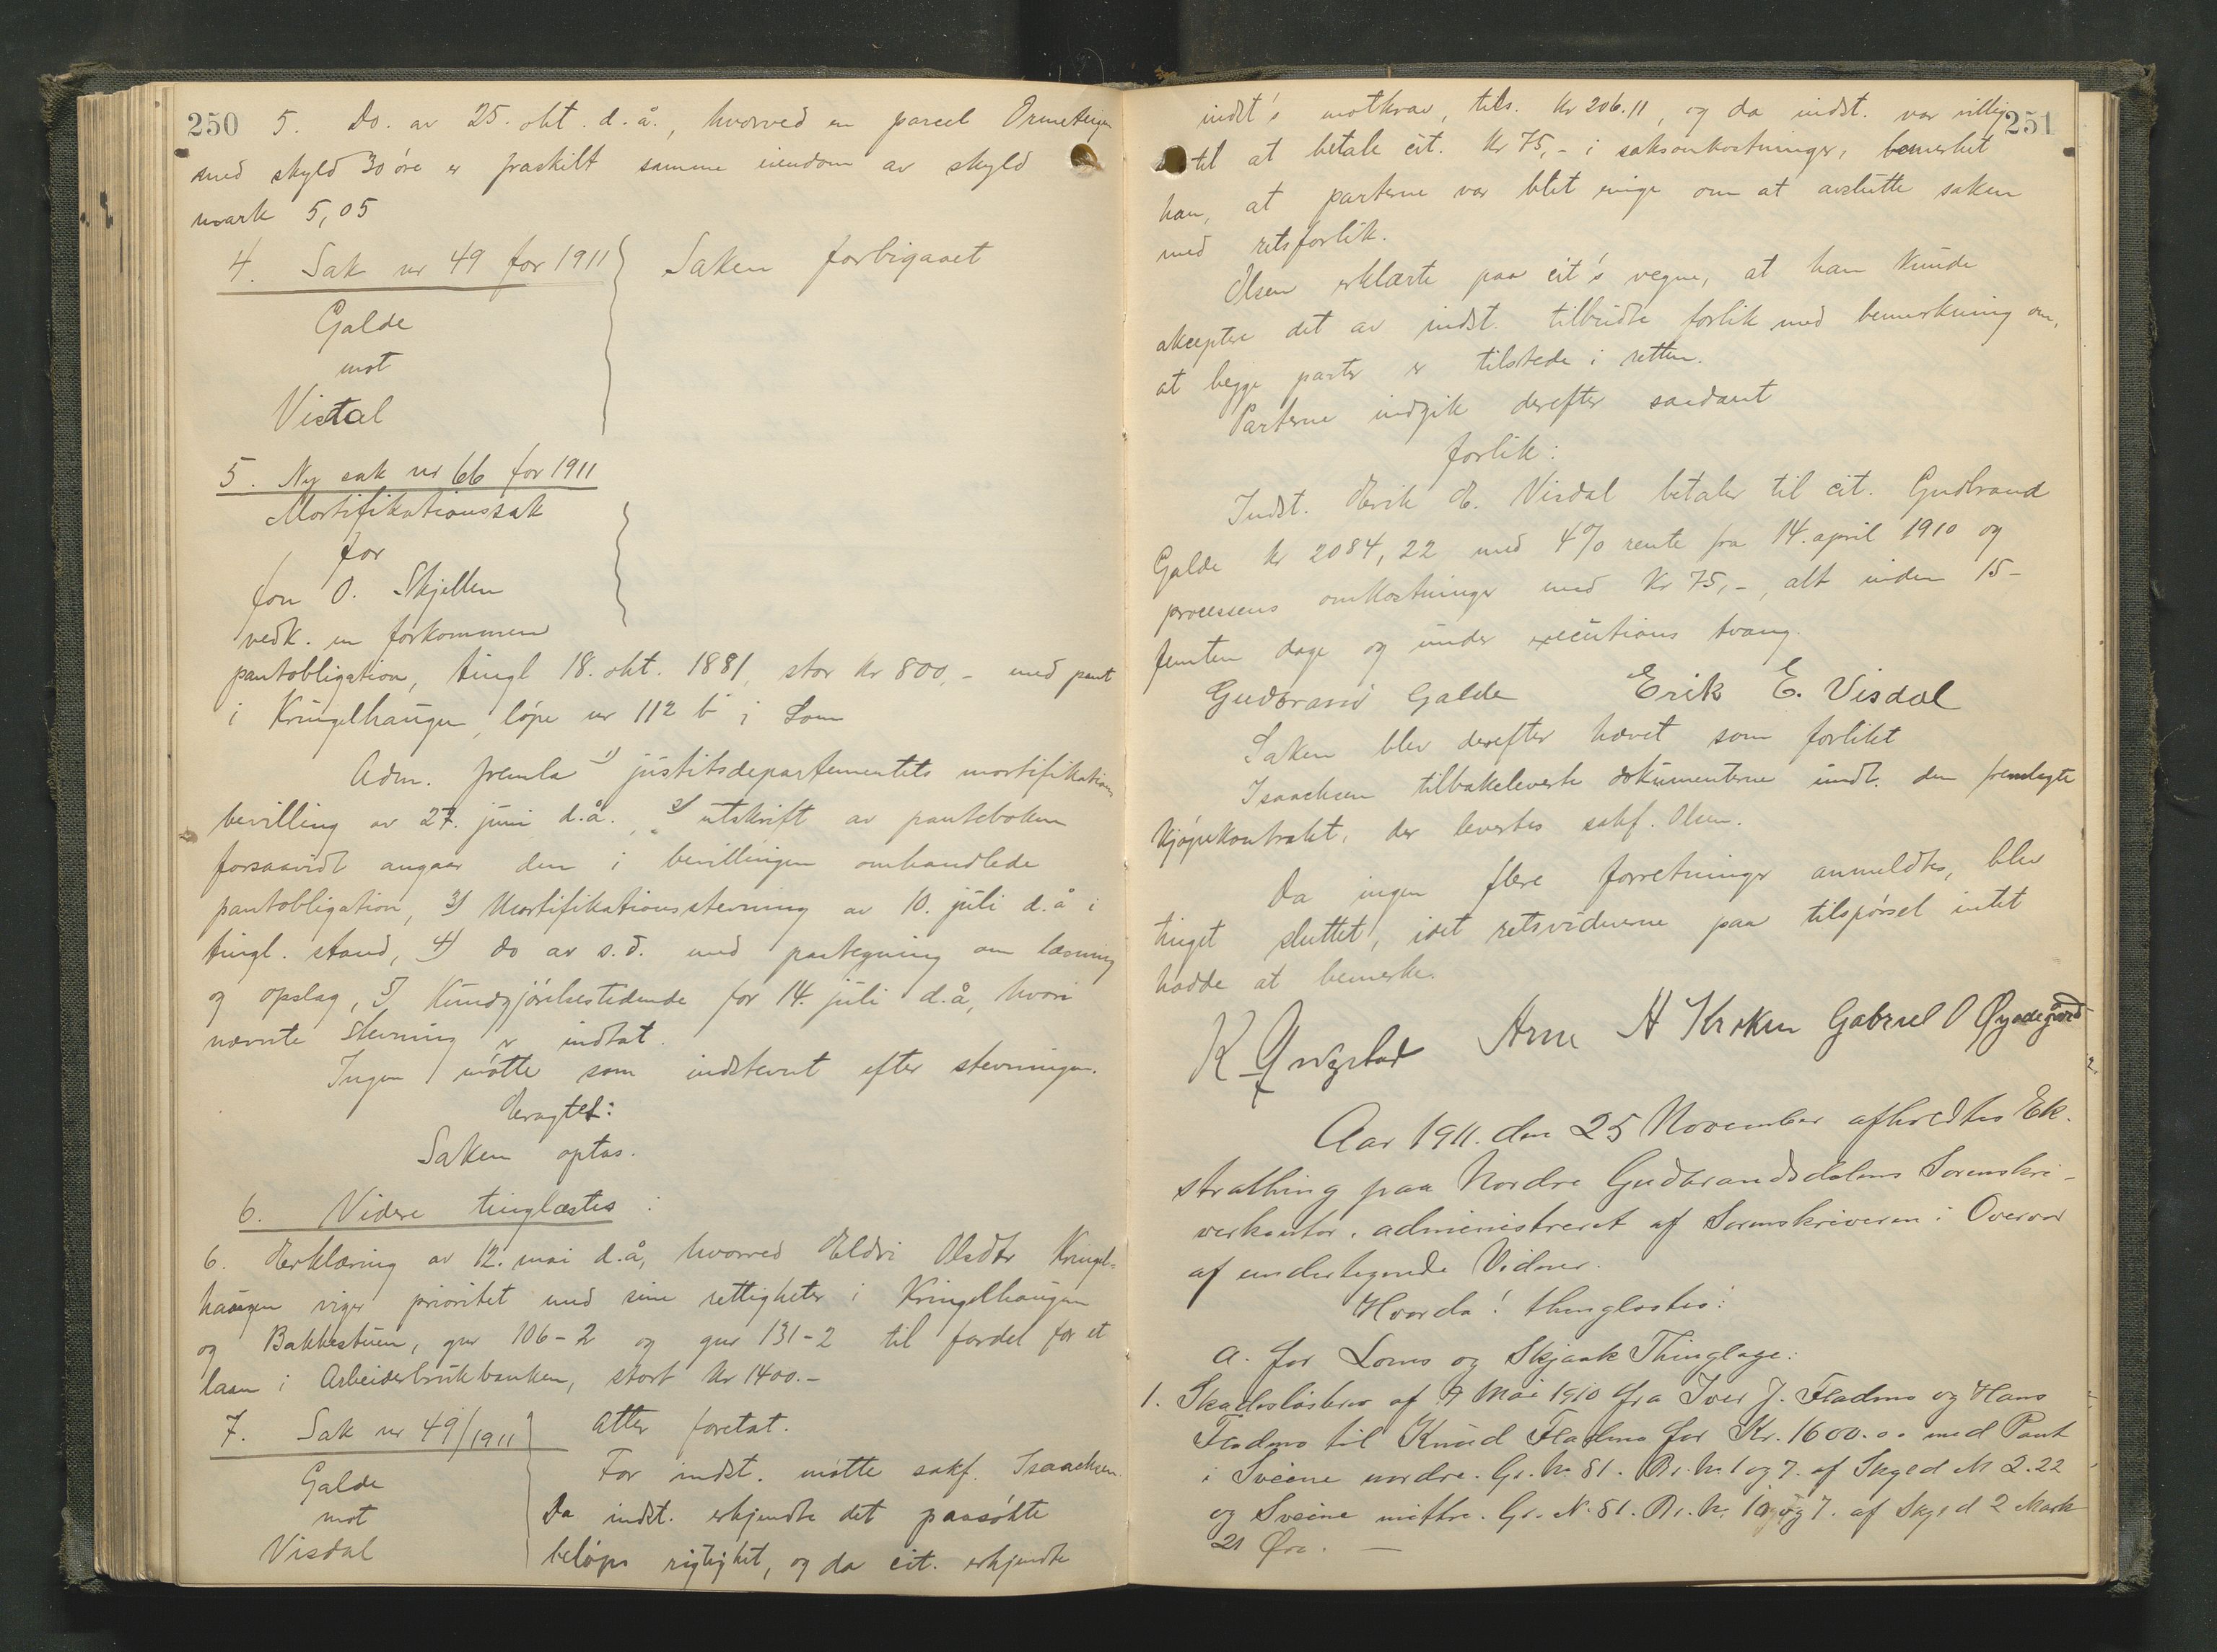 250
5. Do. av 25. okt. d.å., hvorved en parcel
med skyld 30 øre er fraskilt samme eiendom av skyld
mark 5,05
4. Sak nr 49 for 1911 Saken forbigaaet
Galde
mot
Visdal
5. Ny sak nr 66 for 1911
Mortifikationssak
for
O. Skjellum
vedk. en forkommen
pantobligation, tingl 18. okt. 1881, stor kr 800,- med pant
i Kringelhaugen, løpe nr 112 b i Lom
Adm. fremla 1) justitsdepartementets mortifikations
bevilling av 27. juni d.å., 2) utskrift av panteboken
forsaavidt angaar den i bevillingen omhandlede
pantobligation, 3) Mortifikationsstevning av 10. juli d.å i
tingl. stand, 4) do av s.d. med paategning om læsning
og opslag, 5) Kundgjørelsestidende for 14. juli d.å, hvori
nævnte stevning er indtat.
Ingen møtte som indstevnt efter stevningen.
Eragtet:
Saken optas.
6. Videre tinglæstes:
6. Erklæring av 12. mai d.å, hvorved Eldri Olsdtr Kringel-
haugen viger prioritet med sine rettigheter i Kringelhaugen
og Bakkestuen, gnr 106-2 og gnr 131-2 til fordel for et
laan i Arbeiderbrukbanken, stort kr 1400.-
7. Sak nr 49/1911 Atter foretat.
Galde
mot
Visdal
For indst. møtte sakf. Isaachsen.
Da indst. erkjendte det paasøkte
beløps rigtighet, og da cit. erkjendte
251
indst's motkrav, tils. kr 206.11, og da indst. var villig
til at betale cit. kr 75,- i saksomkostninger, bemerket
han, at parterne var blet enige om at avslutte saken
med retsforlik.
Olsen erklærte paa cit's vegne, at han kunde
akceptere det av indst. tilbudte forlik med bemerkning om,
at begge parter er tilstede i retten.
Parterne indgik derefter saadant
forlik:
Indst. Erik E. Visdal betaler til cit. Gudbrand
Galde kr 2084,22 med 4% rente fra 14. april 1910 og
processens omkostninger med kr 75,-, alt inden 15-
femten dage og under executions tvang.
Gudbrand Galde Erik E. Visdal
Saken blev derefter hævet som forlikt
Isaachsen tilbakeleverte dokumenterne undt. den fremlagte
kjøpekontrakt, der levertes sakf. Olsen.
Da ingen flere forretninger anmeldtes, blev
tinget sluttet, idet retsvidnerne paa tilspørsel intet
hadde at bemerke.
K Arne H Kroken Gabriel O Øyadegård
Aar 1911. den 25 November afholdtes Ek-
strathing paa Nordre Gudbrandsdalens Sorenskri-
verkontor, administreret af Sorenskriveren i Overvær
af undertegnede Vidner.
Hvorda! thinglæstes:
a. for Loms og Skjaak Thinglage:
1. Skadesløsbrev af 9 Mai 1910 fra Iver J. Fladmo og Hans
Fladmo til Knud Fladmo for Kr. 1600.00 med Pant
i Sveine nordre. Gr. No 81. Br. No 1 og 7. af Skyld M 2.22
og Sveine mittre. Gr. N. 81. Br. No. og 7. af Skyld 2 Mark
21 Øre. —